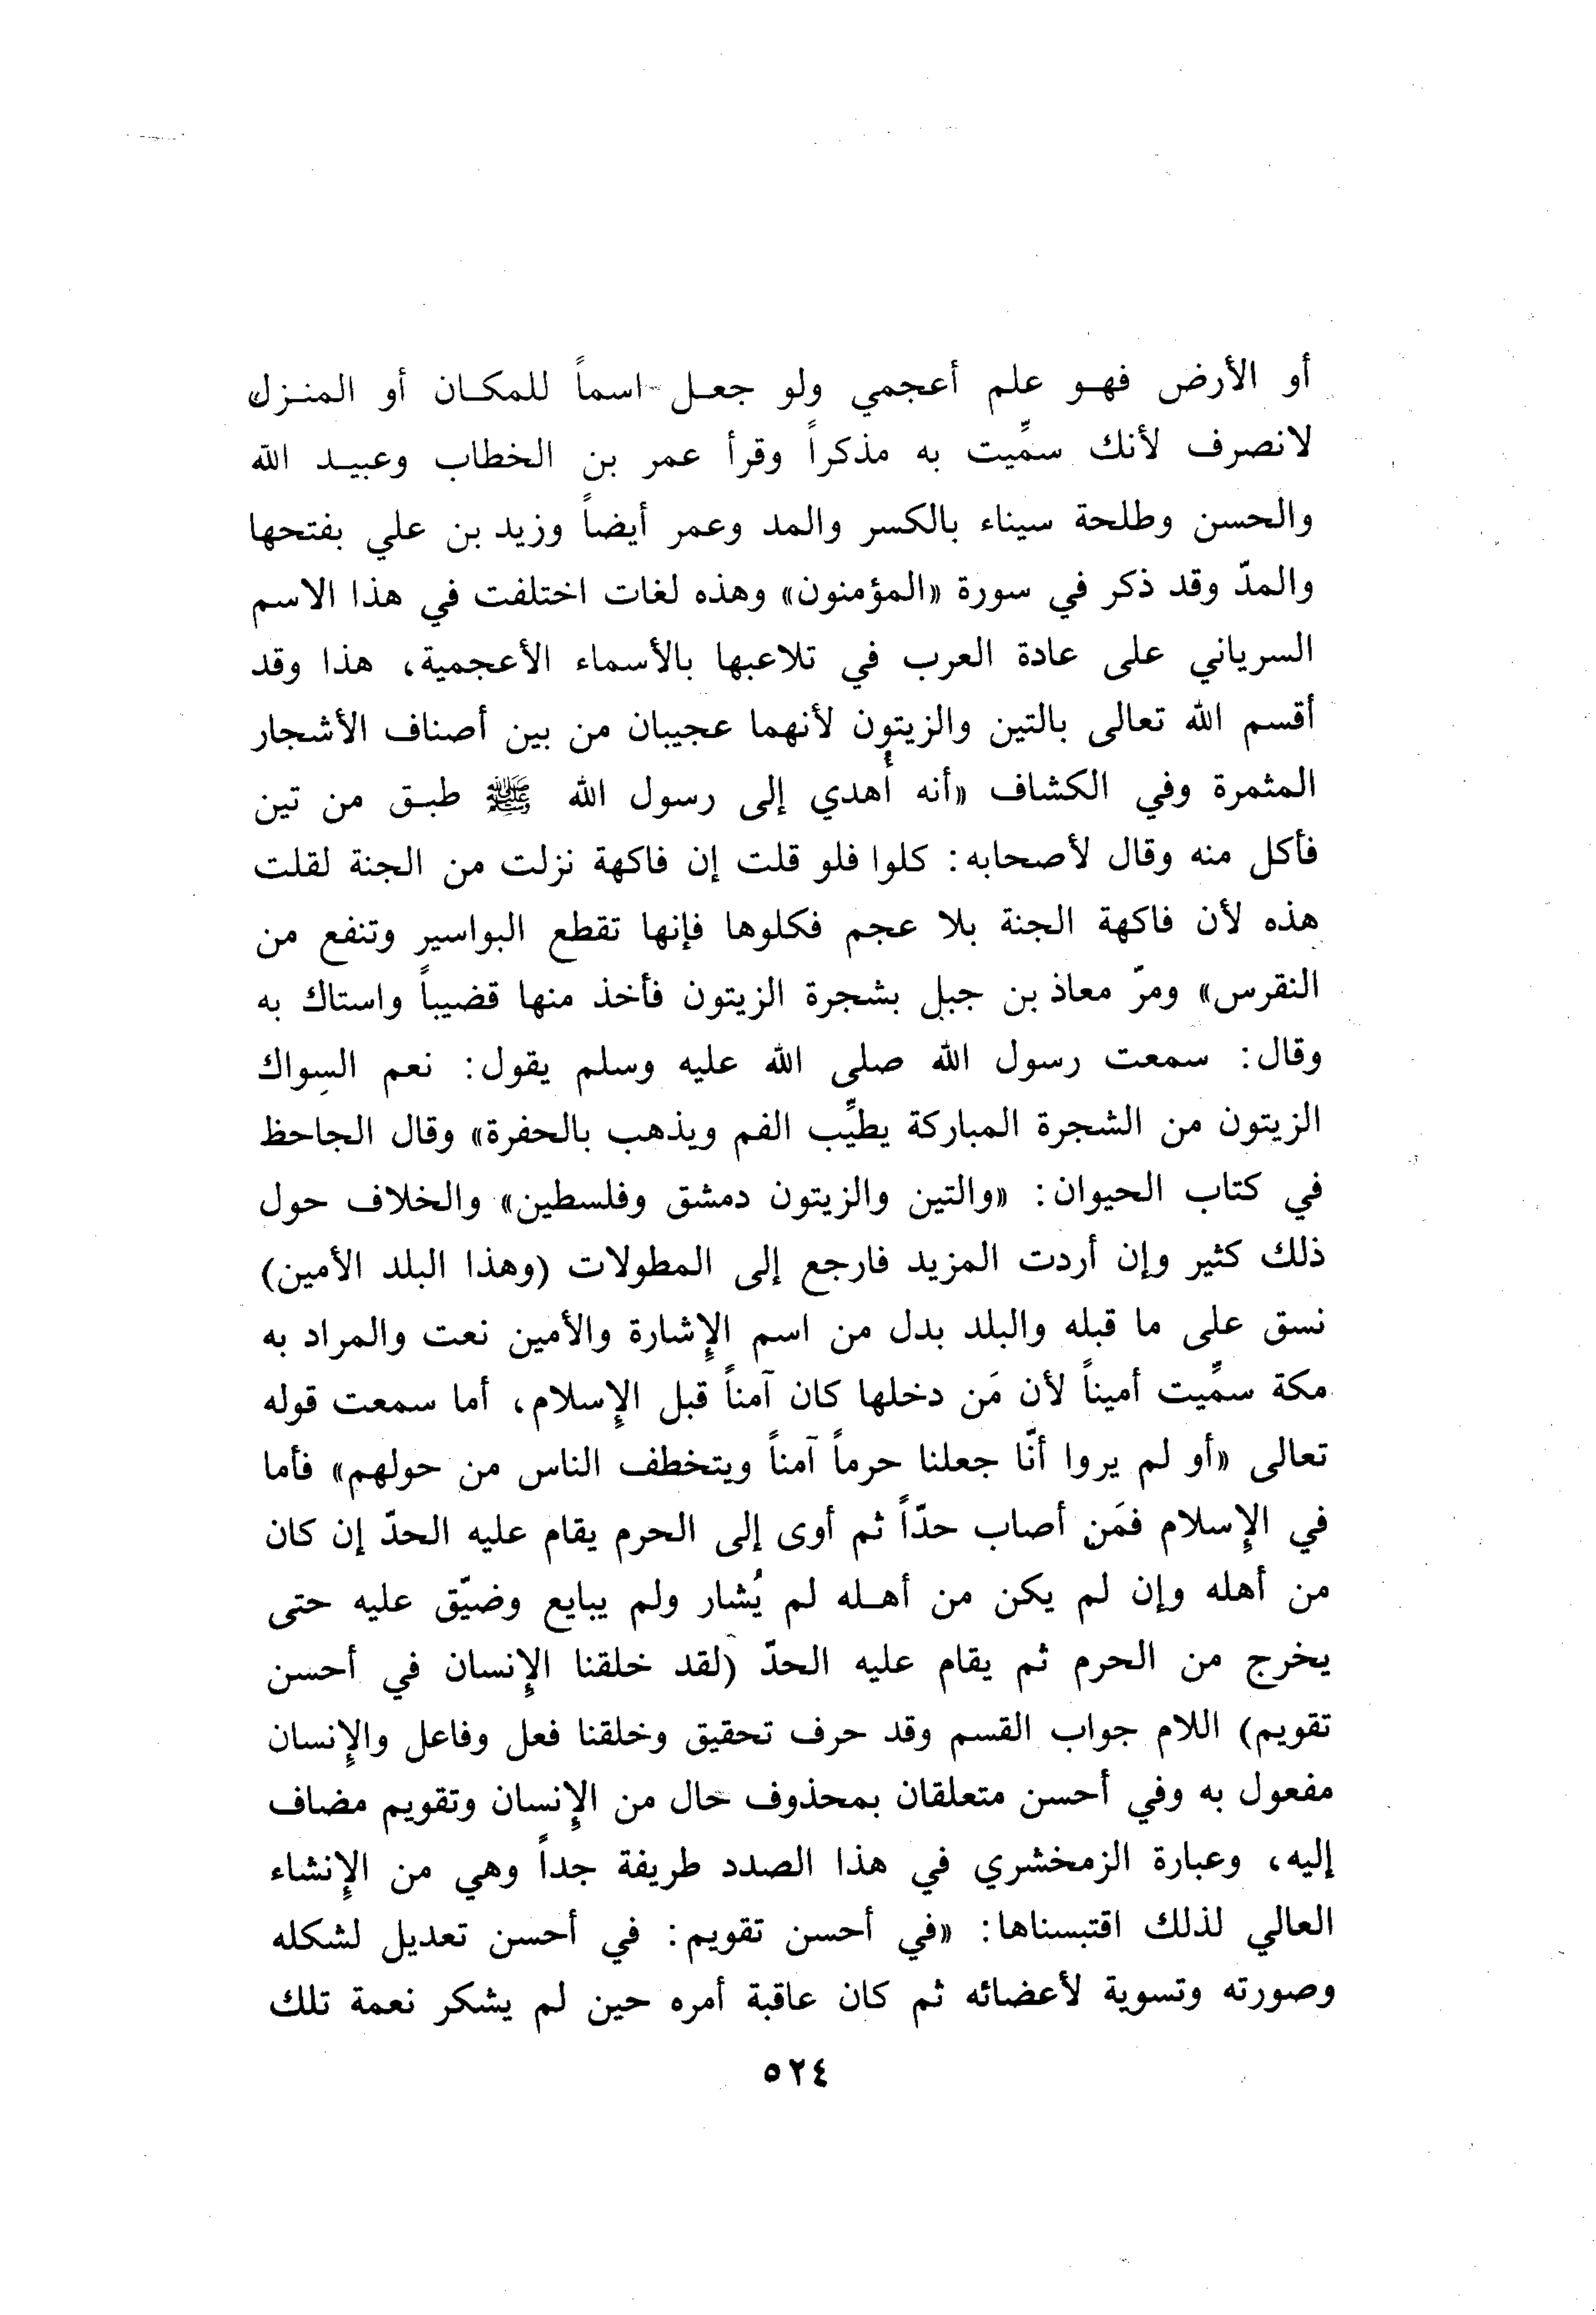 أو الأرض فهو علم أعجمي ولو جعل اسماً للمكان أو المنزل
لانصرف لأنك سمِّيت به مذكراً وقرأ عمر بن الخطاب وعبيد الله
والحسن وطلحة سيناء بالكسر والمد وعمر أيضاً وزيد بن علي بفتحها
والمدّ وقد ذكر في سورة «المؤمنون» وهذه لغات اختلفت في هذا الاسم
السرياني على عادة العرب في تلاعبها بالأسماء الأعجمية، هذا وقد
أقسم الله تعالى بالتين والزيتون لأنهما عجيبان من بين أصناف الأشجار
المثمرة وفي الكشاف «أنه أُهدي إلى رسول الله ﷺ طبق من تين
فأكل منه وقال لأصحابه: كلوا فلو قلت إن فاكهة نزلت من الجنة لقلت
هذه لأن فاكهة الجنة بلا عجم فكلوها فإنها تقطع البواسير وتنفع من
النقرس» ومرّ معاذ بن جبل بشجرة الزيتون فأخذ منها قضيباً واستاك به
وقال: سمعت رسول الله صلى الله عليه وسلم يقول: نعم السواك
الزيتون من الشجرة المباركة يطيِّب الفم ويذهب بالحفرة» وقال الجاحظ
في كتاب الحيوان: «والتين والزيتون دمشق وفلسطين» والخلاف حول
ذلك كثير وإن أردت المزيد فارجع إلى المطولات (وهذا البلد الأمين)
نسق على ما قبله والبلد بدل من اسم الإشارة والأمين نعت والمراد به
مكة سمِّيت أميناً لأن مَن دخلها كان آمناً قبل الإسلام، أما سمعت قوله
تعالى «أو لم يروا أنّا جعلنا حرماً آمناً ويتخطف الناس من حولهم» فأما
في الإسلام فمَن أصاب حدّاً ثم أوى إلى الحرم يقام عليه الحدّ إن كان
من أهله وإن لم يكن من أهله لم يُشار ولم يبايع وضيّق عليه حتى
يخرج من الحرم ثم يقام عليه الحدّ (لقد خلقنا الإنسان في أحسن
تقويم) اللام جواب القسم وقد حرف تحقيق وخلقنا فعل وفاعل والإنسان
مفعول به وفي أحسن متعلقان بمحذوف حال من الإنسان وتقويم مضاف
إليه، وعبارة الزمخشري في هذا الصدد طريفة جداً وهي من الإنشاء
العالي لذلك اقتبسناها: «في أحسن تقويم: في أحسن تعديل لشكله
وصورته وتسوية لأعضائه ثم كان عاقبة أمره حين لم يشكر نعمة تلك
٥٢٤